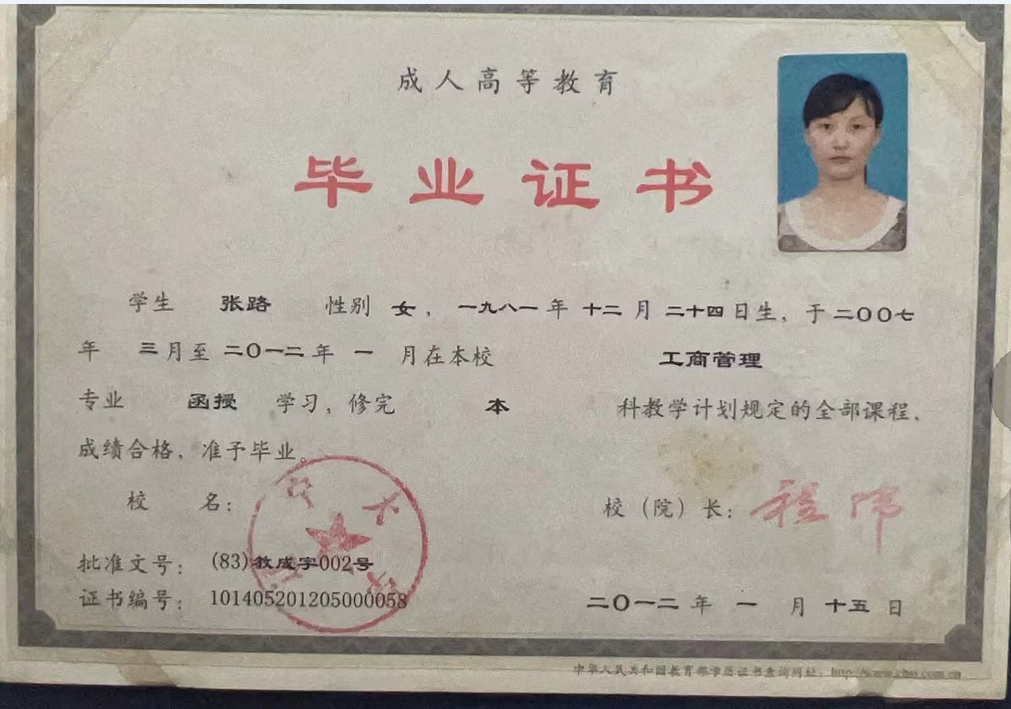 成人高等教育
毕业证书
学生 张路 性别 女，一九八一年 十二 月 二十四日生，于二〇〇七
年 三月至 二〇一二年 一 月在本校 工商管理
专业 函授 学习，修完 本 科教学计划规定的全部课程，
成绩合格，准予毕业。
校 名： 校（院）长：程伟
批准文号：(83)教成字002号
证书编号：101405201205000058 二〇一二 年 一 月 十五 日
中华人民共和国教育部学历证书查询网址：http://www.chsi.com.cn